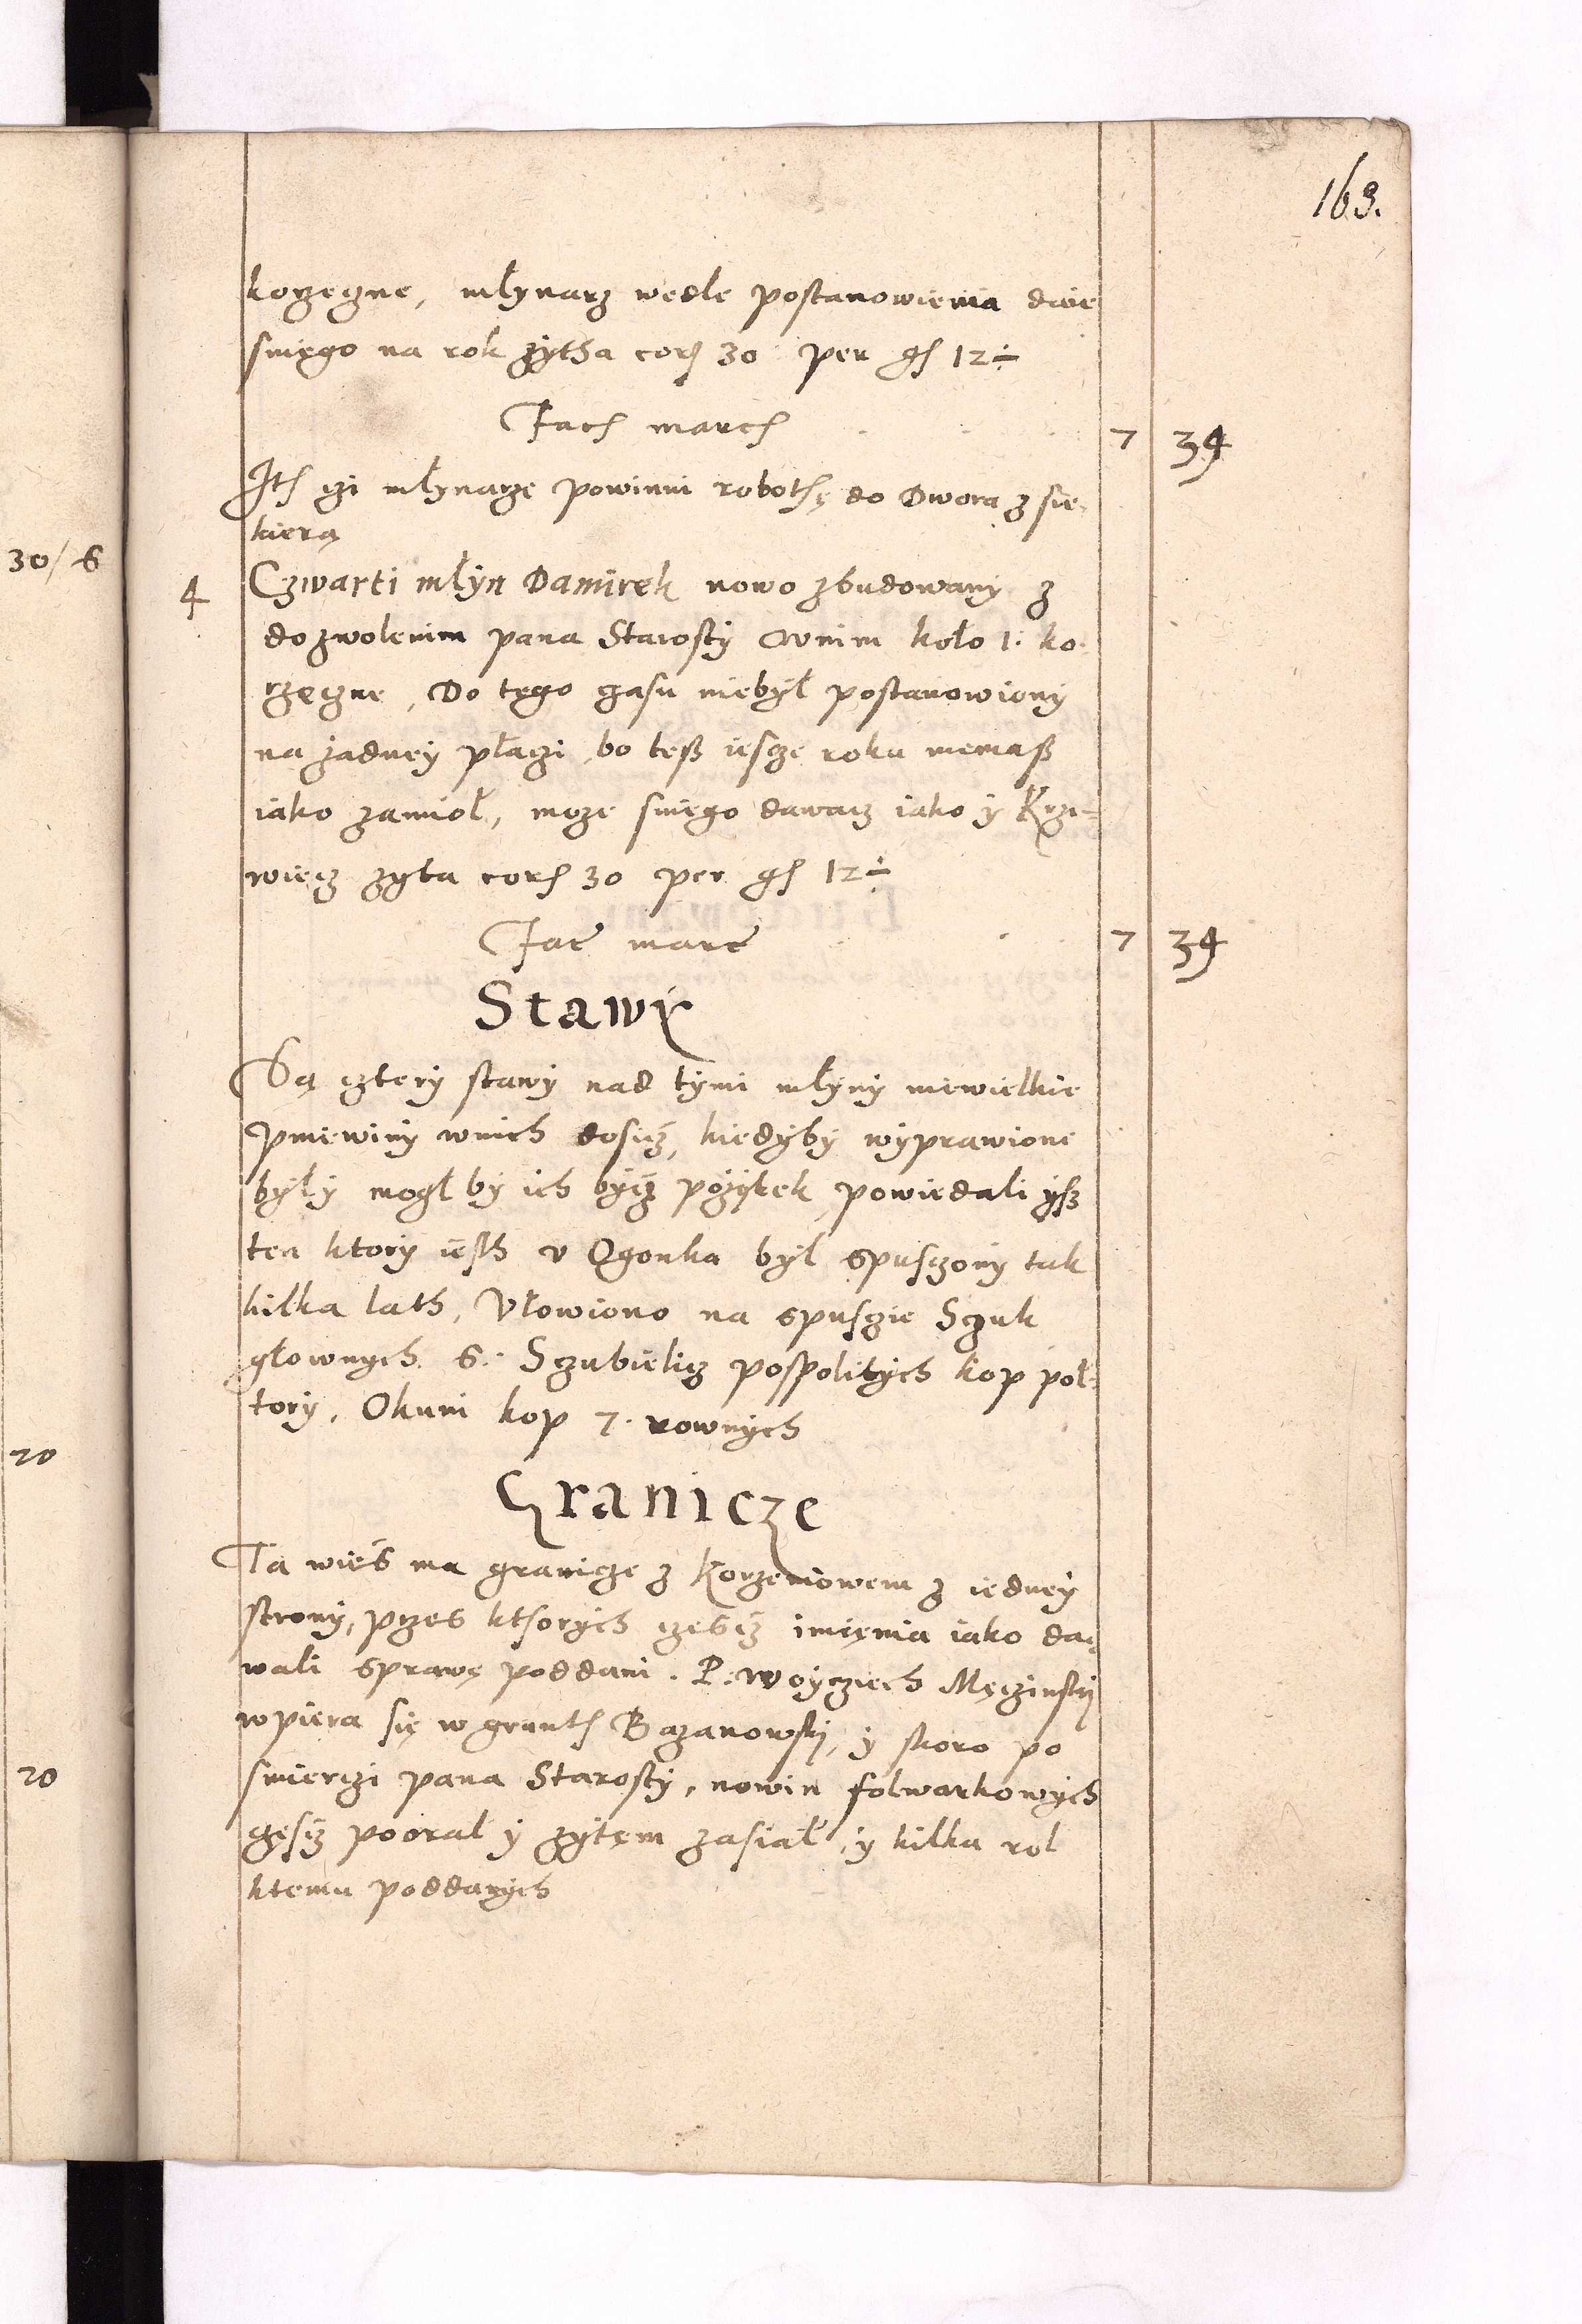 163.
korzeczne, młynarz wedle postanowienia daie
sniego na rok zytha cor 30 per gs 12÷
Fach march 7 34
Ith czi młynarze powinni robothę do Dwora z sie-
kierą
30/6
4 Czwarti młyn Damirek nowo zbudowany z
dozwolenim pana Starosty wnim koło 1. ko-
rzeczne, Do tego czasu niebył postanowiony
na żadney płaczi, bo tesz iescze roku niemasz
iako zamiol, moze sniego dawacz iako y Krze-
wiecz zyta cor 30 per gs 12÷
Fac marc 7 34
Stawy
Są cztery stawy nad tymi młyny niewielkie
pniewiny wnich dosicz, kiedyby wyprawione
były mogl by ich bycz pozytek, powiedali ysz
ten ktory iesth v Ogonka był spusczony tak
kilka lath, Vłowiono na spuscie Sczuk
głownych 6. Sczubielicz pospolitych kop poł-
tory, Okuni kop 7. rownych
20
Granicze
Ta wies ma granicze z Korzeniowem z iedney
strony, przes kthorych czescz imięnia iako da-
wali sprawę poddani. P. Woycziech Męczinski
wpiera się w grunth Bazanowski, y skoro po
20
smierczi pana Starosty, nowin folwarkowych
czescz pooral y zytem zasiał, y kilka rol
ktemu poddanych